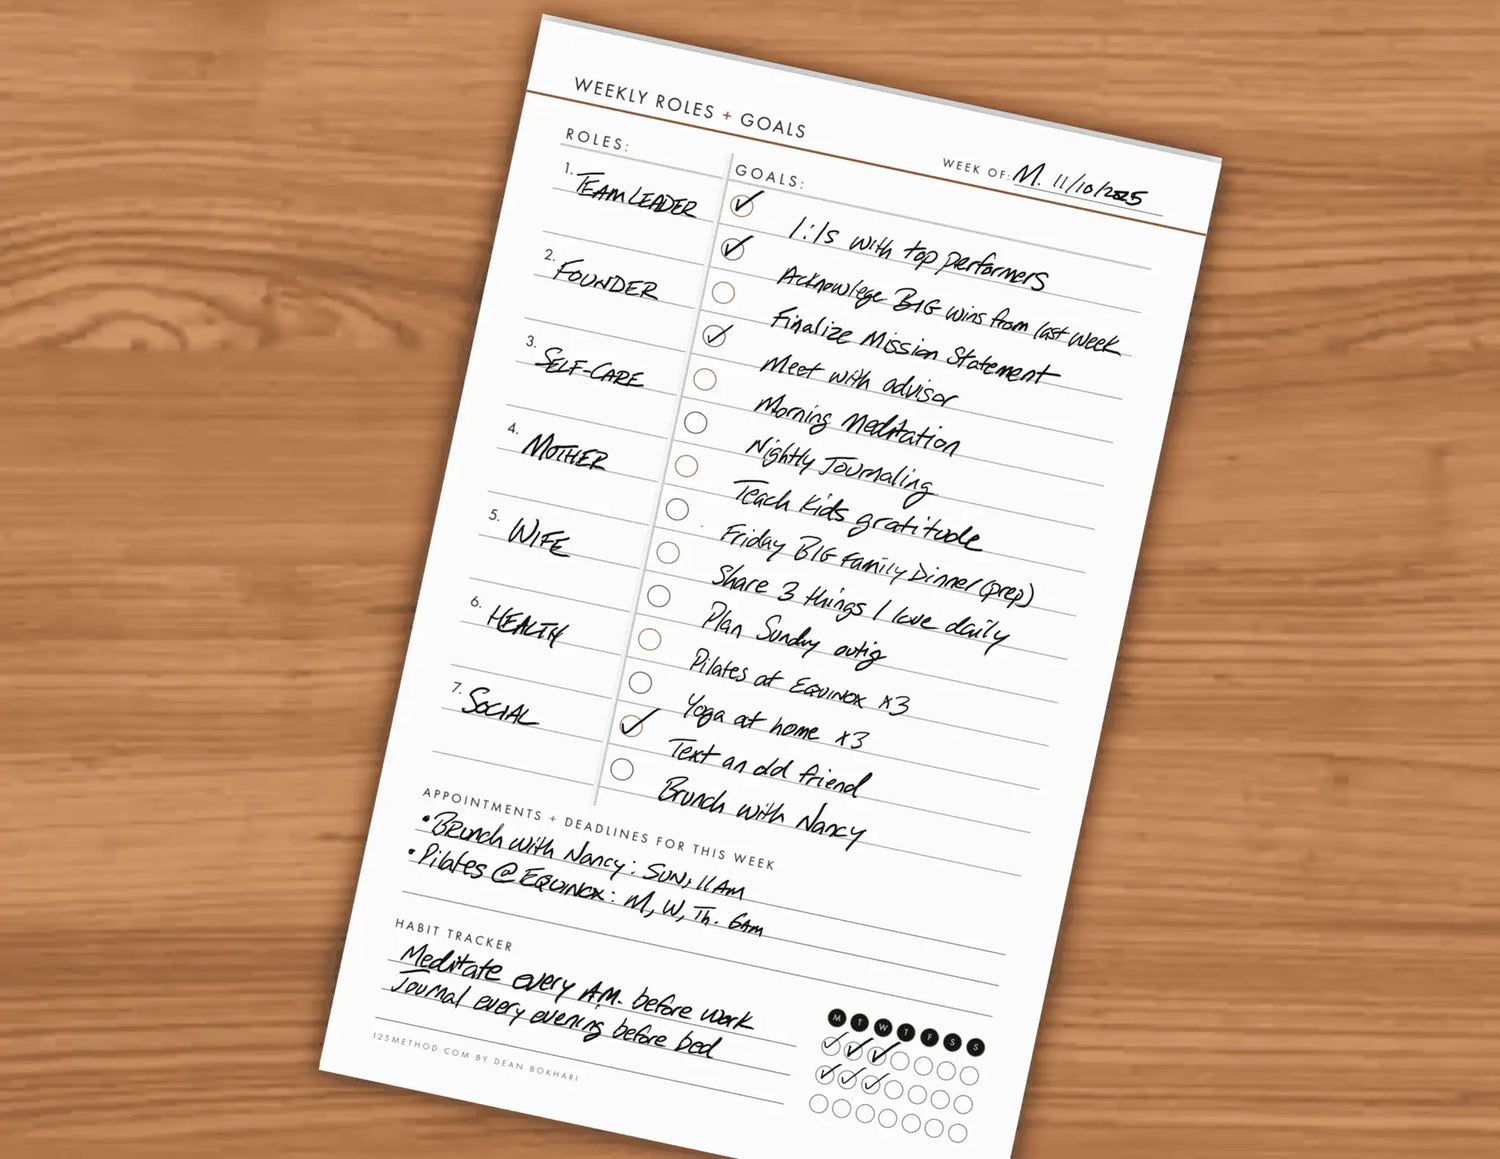 WEEKLY ROLES + GOALS
WEEK OF: M. 11/10/2025
ROLES:
1. TEAM LEADER
2. FOUNDER
3. SELF-CARE
4. MOTHER
5. WIFE
6. HEALTH
7. SOCIAL
GOALS:
1:1s with top performers
Acknowlege BIG wins from last week
Finalize Mission Statement
Meet with advisor
Morning Meditation
Nightly Journaling
Teach kids gratitude
Friday BIG Family Dinner (prep)
Share 3 things I love daily
Plan Sunday outig
Pilates at EQUINOX x3
Yoga at home x3
Text an old friend
Brunch with Nancy
APPOINTMENTS + DEADLINES FOR THIS WEEK
• Brunch with Nancy: SUN, 11AM
• Pilates @ EQUINOX: M, W, Th. 6am
HABIT TRACKER
M T W T F S S
Meditate every A.M. before work
Journal every evening before bed
123METHOD.COM BY DEAN BOKHARI